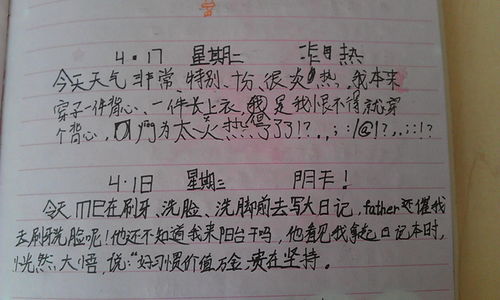 4.17 星期二 炸日热
今天天气非常、特别、十分、很炎热,我本来
穿了一件背心、一件长上衣,可是我恨不得就穿
个背心,因为太炎热了!?.,;:|@!?.,;:!?
4.18 星期三 阴干!
今天 ME在刷牙、洗脸、洗脚前去写大日记,father还催我
去刷牙洗脸呢!他还不知道我来阳台干吗,他看见我拿起日记本时,
恍然大悟,说:“好习惯价值万金,贵在坚持。